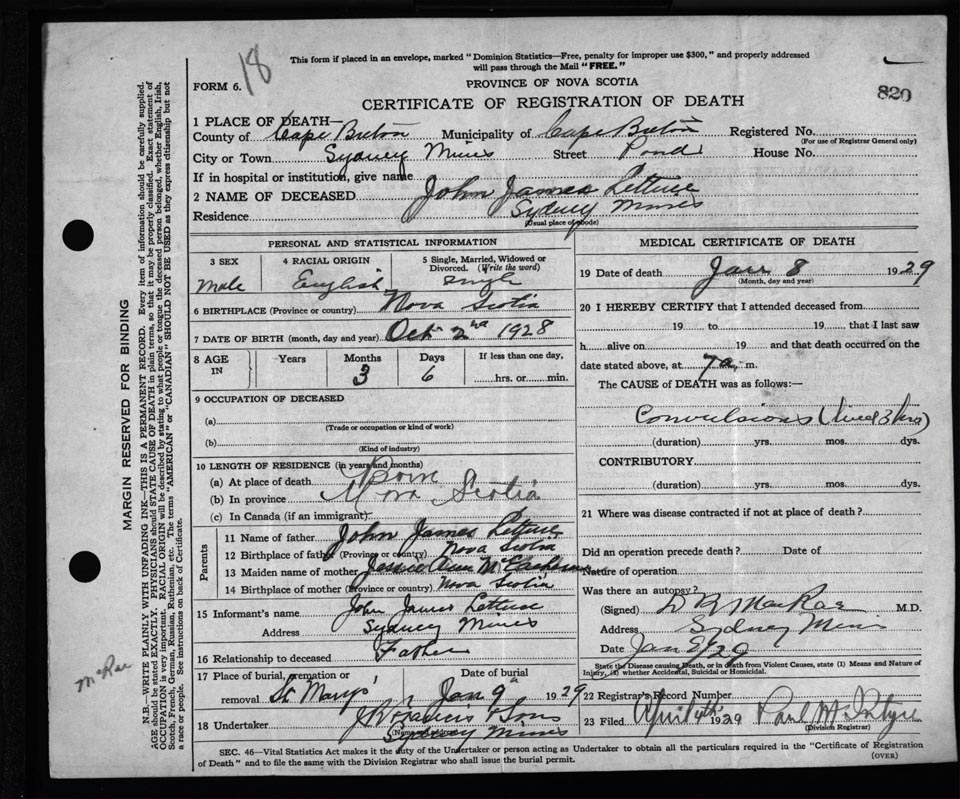 This form if placed in an envelope, marked "Dominion Statistics—Free, penalty for improper use $300," and properly addressed
will pass through the Mail "FREE."
18
FORM 6.
PROVINCE OF NOVA SCOTIA
820
CERTIFICATE OF REGISTRATION OF DEATH
1 PLACE OF DEATH—
County of Cape Breton Municipality of Cape Breton Registered No.
(For use of Registrar General only)
City or Town Sydney Mines Street Pond House No.
If in hospital or institution, give name
2 NAME OF DECEASED John James Lettuce
Residence Sydney Mines
(Usual place of abode)
PERSONAL AND STATISTICAL INFORMATION
3 SEX 4 RACIAL ORIGIN 5 Single, Married, Widowed or
Divorced. (Write the word)
Male English Single
6 BIRTHPLACE (Province or country) Nova Scotia
7 DATE OF BIRTH (month, day and year) Oct 2nd 1928
8 AGE IN Years Months Days If less than one day,
3 6 hrs. or min.
9 OCCUPATION OF DECEASED
(a)
(Trade or occupation or kind of work)
(b)
(Kind of industry)
10 LENGTH OF RESIDENCE (in years and months)
(a) At place of death Born
(b) In province Nova Scotia
(c) In Canada (if an immigrant)
Parents
11 Name of father John James Lettuce
12 Birthplace of father (Province or country) Nova Scotia
13 Maiden name of mother Jessie Ann
14 Birthplace of mother (Province or country) Nova Scotia
15 Informant's name John James Lettuce
Address Sydney Mines
16 Relationship to deceased Father
17 Place of burial, cremation or Date of burial
removal St Marys' Jan 9 1929
18 Undertaker & Sons
(Name and address)
Sydney Mines
MEDICAL CERTIFICATE OF DEATH
19 Date of death Jan 8 1929
(Month, day and year)
20 I HEREBY CERTIFY that I attended deceased from
19 to 19 that I last saw
h alive on 19 and that death occurred on the
date stated above, at 7 a. m.
The CAUSE of DEATH was as follows:—
Convulsions (lived 3 hrs)
(duration) yrs. mos. dys.
CONTRIBUTORY
(duration) yrs. mos. dys.
21 Where was disease contracted if not at place of death?
Did an operation precede death? Date of
Nature of operation
Was there an autopsy?
(Signed) MacRae M.D.
Address Sydney Mines
Date Jan
State the Disease causing Death, or in death from Violent Causes, state (1) Means and Nature of
Injury, (2) whether Accidental, Suicidal or Homicidal.
22 Registrar's Record Number
23 Filed April 4th 1929 Paul
(Division Registrar)
SEC. 46—Vital Statistics Act makes it the duty of the Undertaker or person acting as Undertaker to obtain all the particulars required in the "Certificate of Registration
of Death" and to file the same with the Division Registrar who shall issue the burial permit.
(OVER)
MARGIN RESERVED FOR BINDING
N.B.—WRITE PLAINLY WITH UNFADING INK—THIS IS A PERMANENT RECORD. Every item of information should be carefully supplied.
AGE should be stated EXACTLY. PHYSICIANS should STATE CAUSE OF DEATH in plain terms, so that it may be properly classified. Exact statement of
OCCUPATION is very important. RACIAL ORIGIN will be described by stating to what people or tongue the deceased person belonged, whether English, Irish,
Scotch, French, German, Russian, Ruthenian, etc. The terms "AMERICAN" or "CANADIAN" SHOULD NOT BE USED as they express citizenship but not
a race or people. See instructions on back of Certificate.
McRae